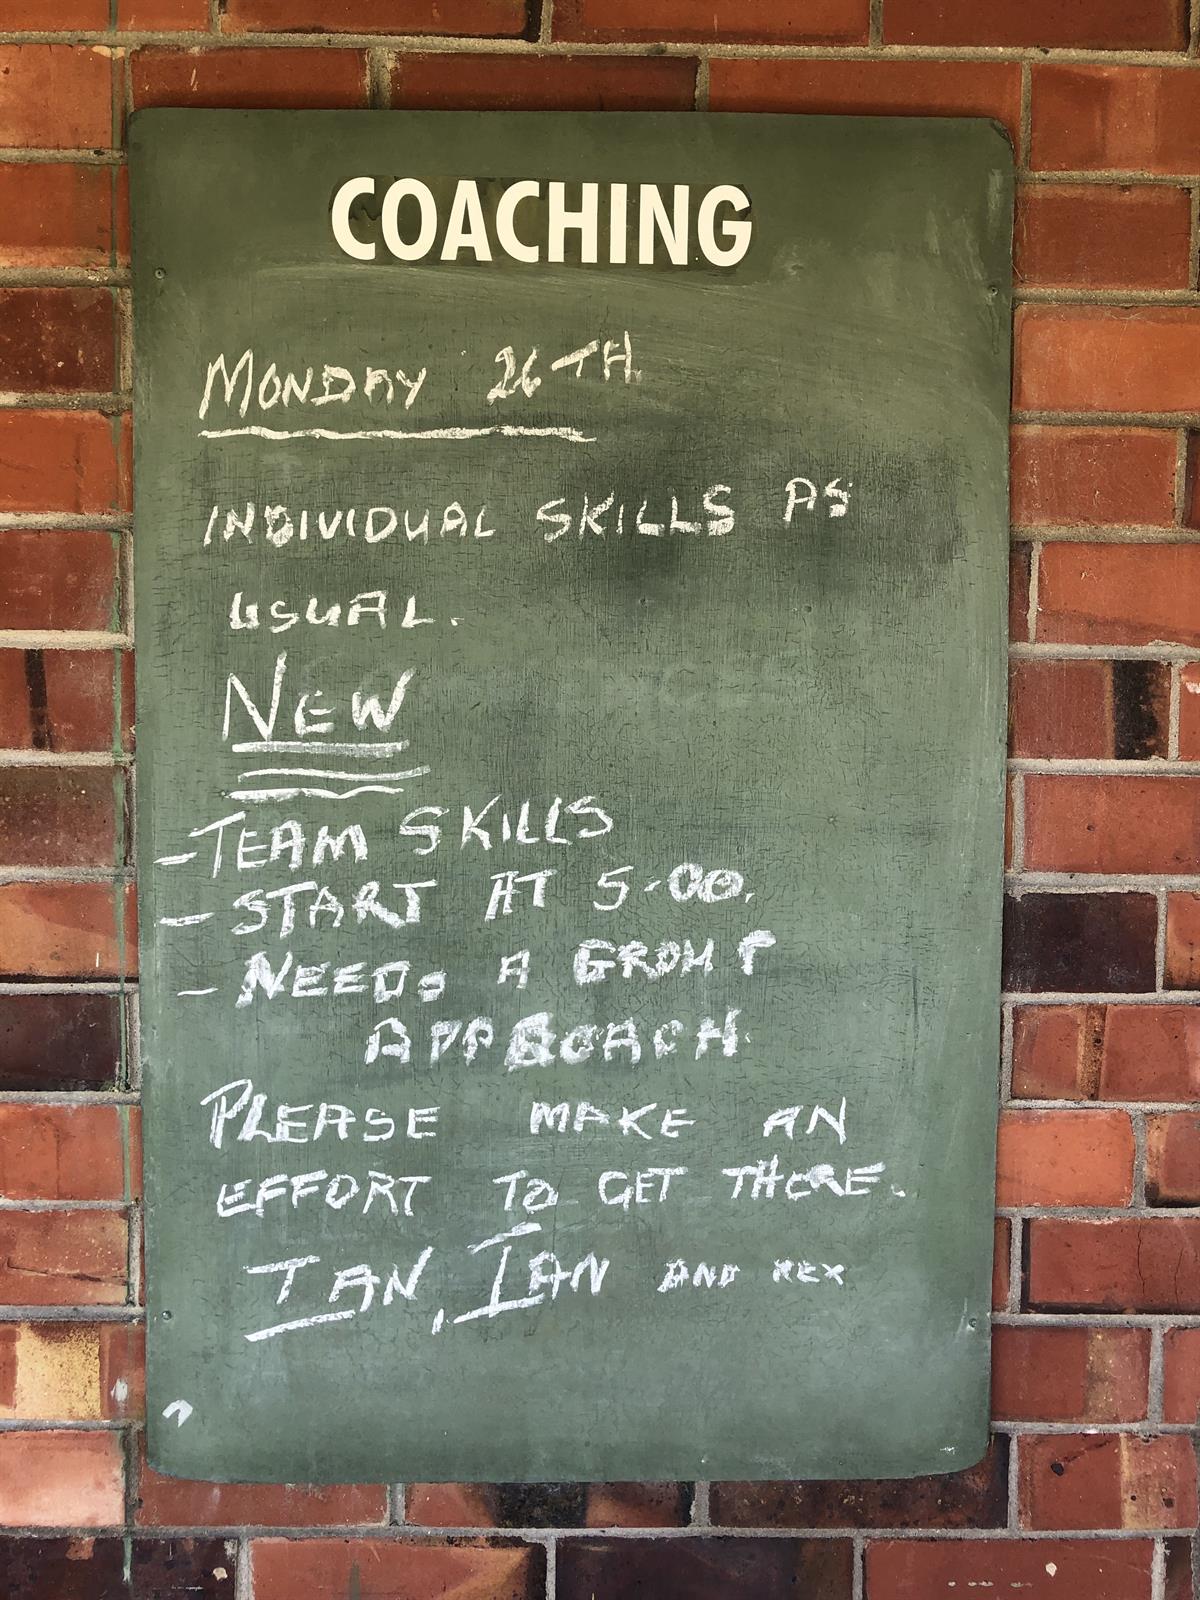 COACHING
MONDAY 26TH
INDIVIDUAL SKILLS AS
USUAL.
NEW
- TEAM SKILLS
- START AT 5.00.
- NEEDS A GROUP
APPROACH.
PLEASE MAKE AN
EFFORT TO GET THERE.
IAN, IAN AND REX